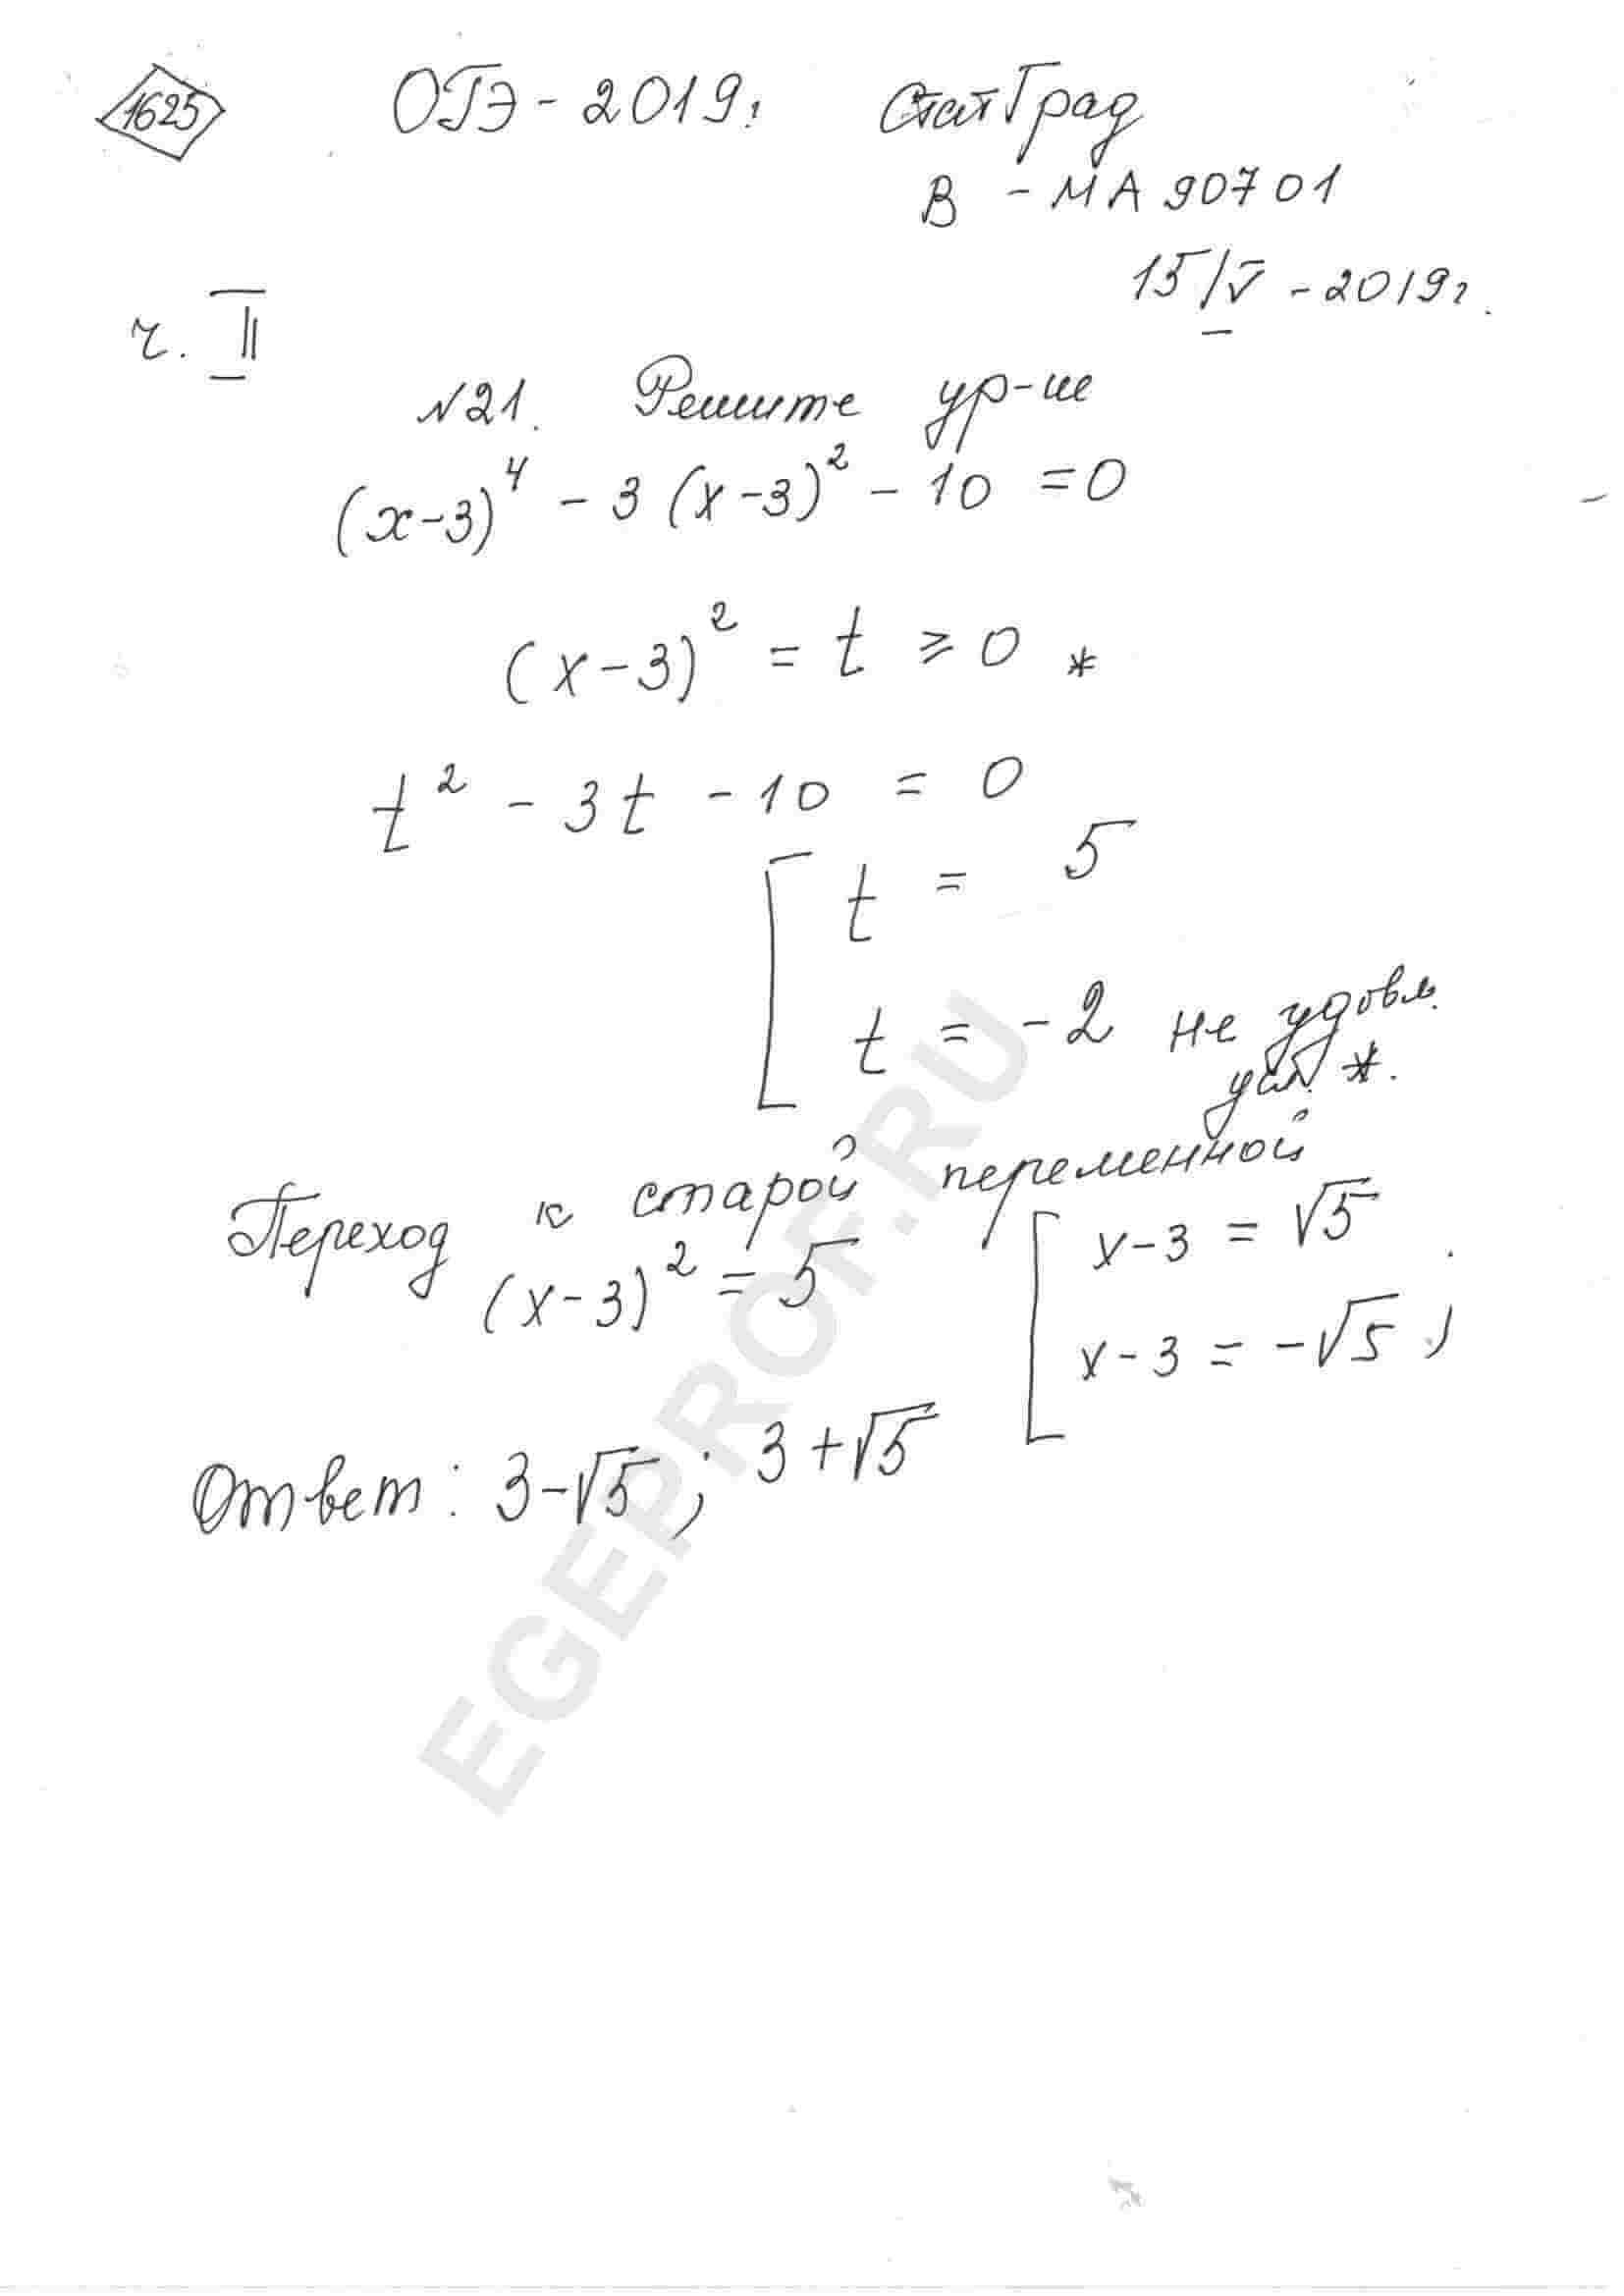 1625 ОГЭ - 2019г. СтатГрад
В - МА 90701
15/V - 2019г.
ч. II
№21. Решите ур-ие
(x-3)⁴ - 3(x-3)² - 10 = 0
(x-3)² = t ≥ 0 *
t² - 3t - 10 = 0
[ t = 5
t = -2 не удовл.
усл. *.
Переход к старой переменной
(x-3)² = 5 [ x-3 = √5
x-3 = -√5 ;
Ответ: 3-√5 ; 3+√5
EGEPROF.RU